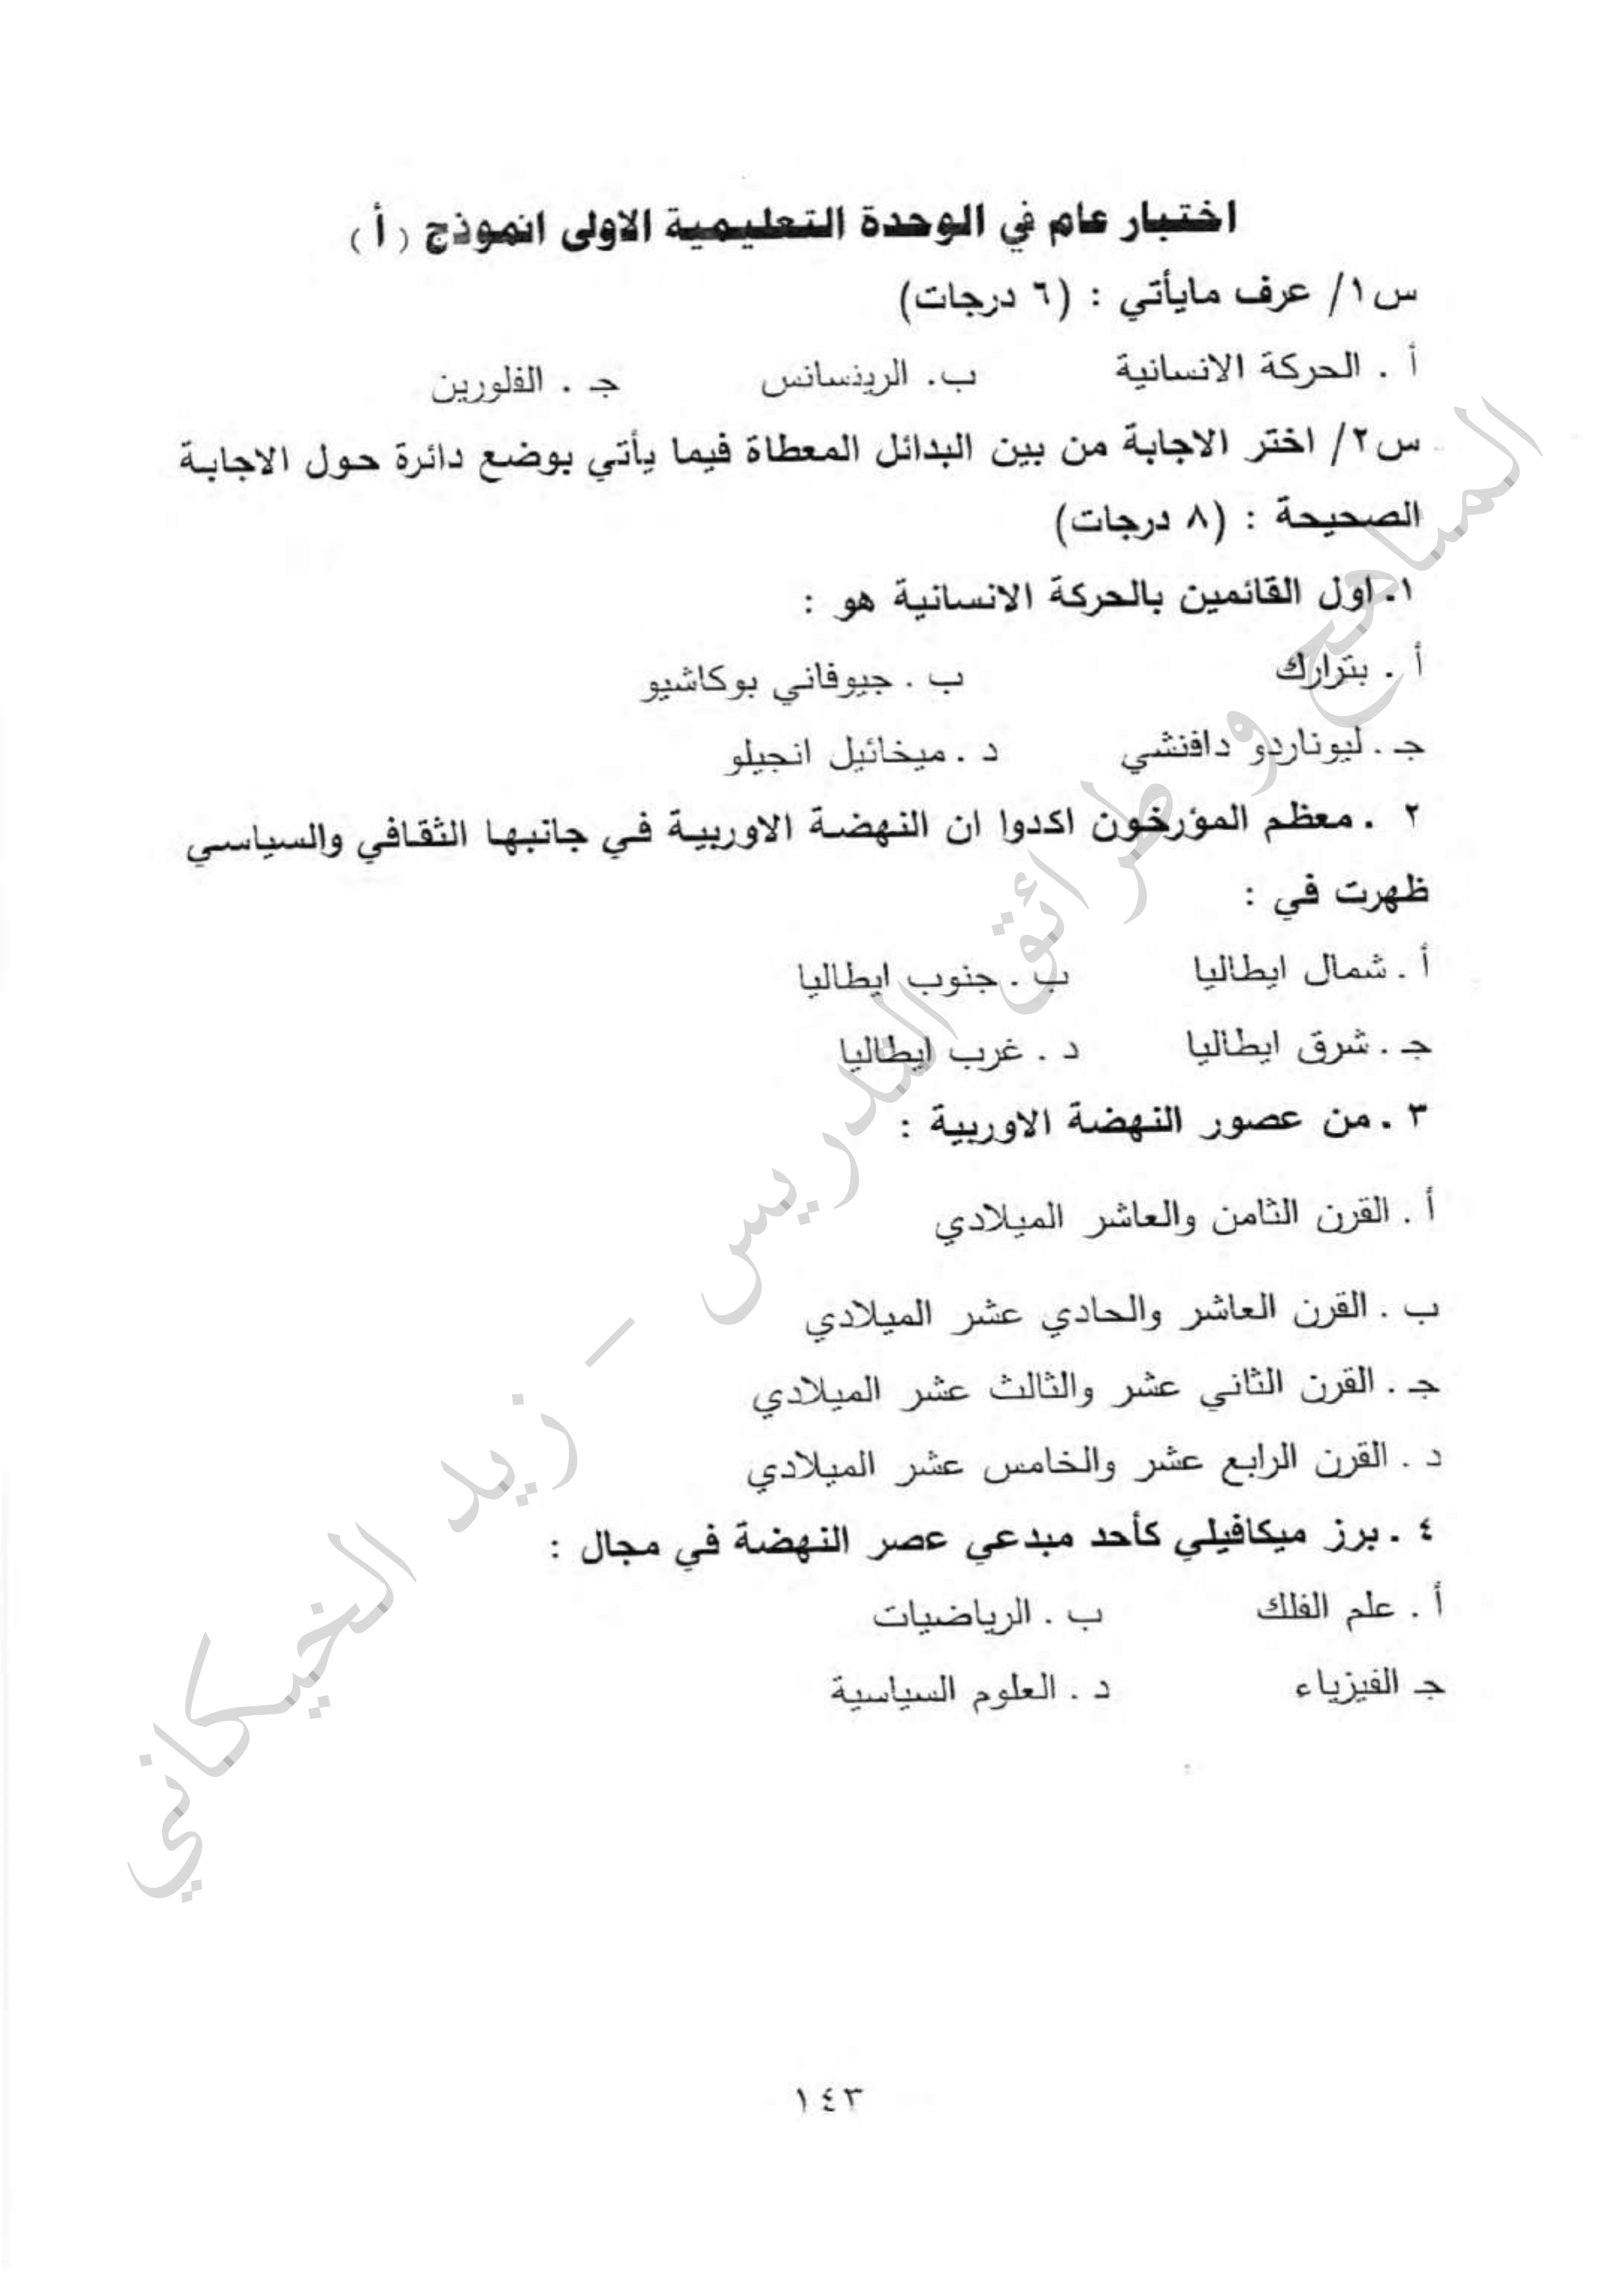 اختبار عام في الوحدة التعليمية الاولى انموذج ( أ )
س١/ عرف مايأتي : (٦ درجات)
أ . الحركة الانسانية ب. الرينسانس جـ . الفلورين
س٢/ اختر الاجابة من بين البدائل المعطاة فيما يأتي بوضع دائرة حول الاجابة
الصحيحة : (٨ درجات)
١. اول القائمين بالحركة الانسانية هو :
أ . بترارك ب . جيوفاني بوكاشيو
جـ . ليوناردو دافنشي د . ميخائيل انجيلو
٢ . معظم المؤرخون اكدوا ان النهضة الاوربية في جانبها الثقافي والسياسي
ظهرت في :
أ . شمال ايطاليا ب . جنوب ايطاليا
جـ . شرق ايطاليا د . غرب ايطاليا
٣ . من عصور النهضة الاوربية :
أ . القرن الثامن والعاشر الميلادي
ب . القرن العاشر والحادي عشر الميلادي
جـ . القرن الثاني عشر والثالث عشر الميلادي
د . القرن الرابع عشر والخامس عشر الميلادي
٤ . برز ميكافيلي كأحد مبدعي عصر النهضة في مجال :
أ . علم الفلك ب . الرياضيات
جـ الفيزياء د . العلوم السياسية
١٤٣
المناهج و طرائق التدريس – زيد الخيكاني